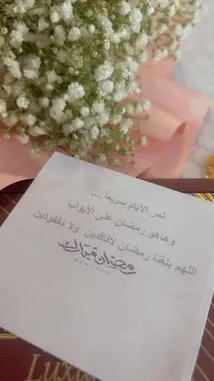 تمر الأيام سريعاً....
وهاهو رمضان على الأبواب
اللهم بلغنا رمضان لافاقدين ولا مفقودين
رمضان مبارك
Luxu